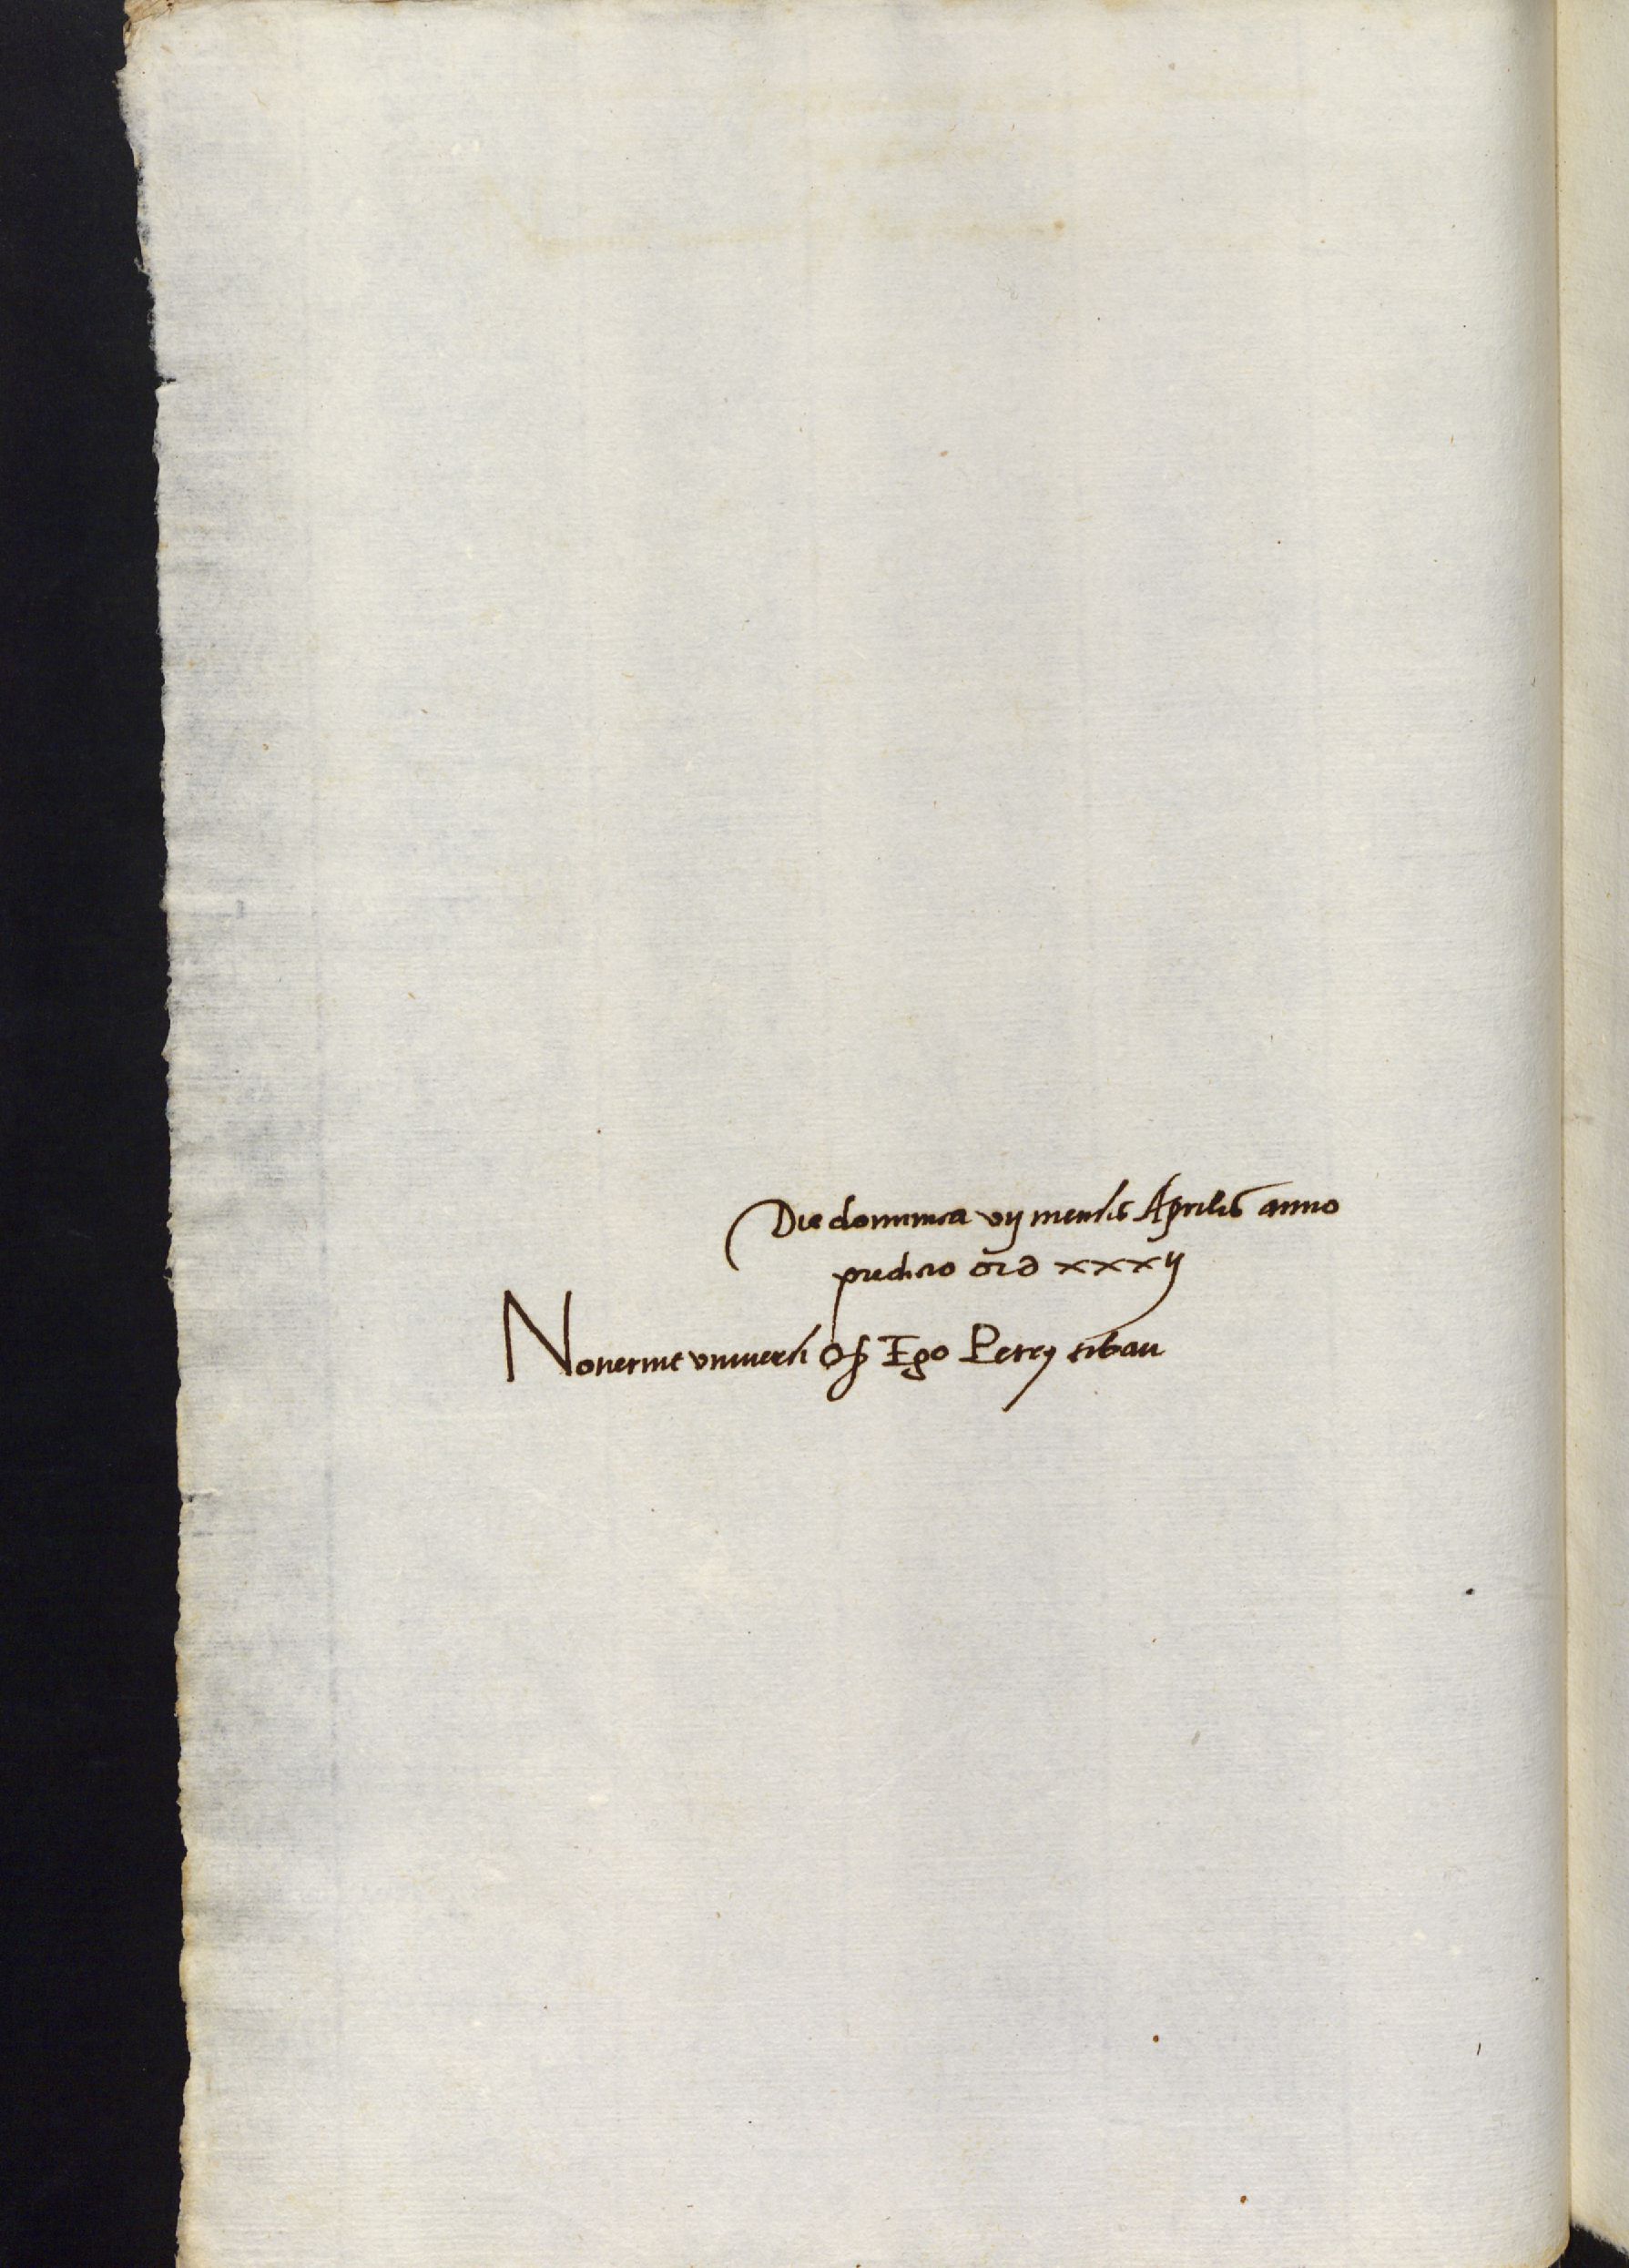 Die dominica vij mensis Aprilis anno
predicto MD xxxij
Noverint universi q Ego Petrus tibau